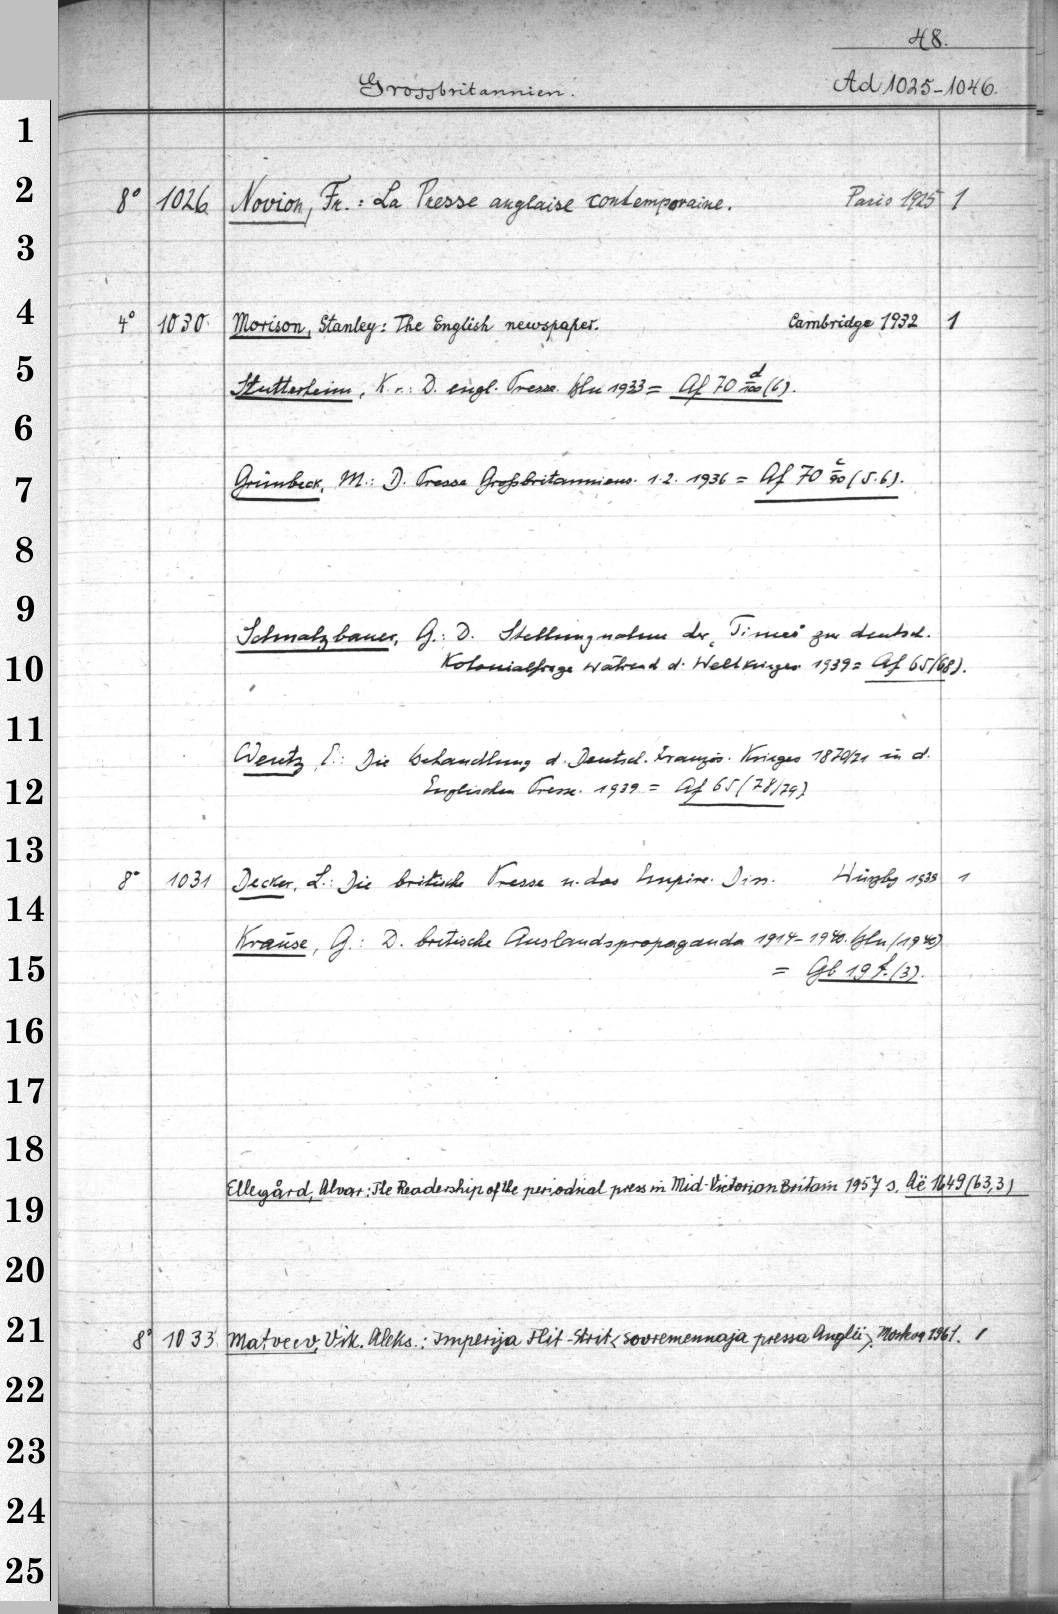 48.
Grossbritannien.
Ad 1025-1046.
1
2
8° 1026 Novion, Fr.: La Presse anglaise contemporaine. Paris 1925 1
3
4
4° 1030 Morison, Stanley: The English newspaper. Cambridge 1932 1
5
Stutterheim, K. v.: D. engl. Presse. Bln 1933 = Af 70 d/100 (6).
6
7
Grünbeck, M.: D. Presse Großbritanniens. 1.2. 1936 = Af 70 c/90 (5.6).
8
9
Schmalzbauer, G.: D. Stellungnahme der "Times" zur deutsch.
10
Kolonialfrage während d. Weltkrieges 1939 = Af 65 (68).
11
Wentz, E.: Die Behandlung d. Deutsch. Französ. Krieges 1870/71 in d.
12
Englischen Presse. 1939 = Af 65 (78/79)
13
8° 1031 Decker, L.: Die britische Presse u. das Empire. Diss. Würzbg 1939 1
14
Krause, G.: D. britische Auslandspropaganda 1914-1940. Bln (1940)
15
= Gb 19 f. (3).
16
17
18
Ellegård, Alvar: The Readership of the periodical press in Mid-Victorian Britain 1957 s. Aë 1649 (63,3)
19
20
21
8° 1033 Matveev, Vik. Aleks.: Imperija Flit-Strit <Sovremennaja pressa Anglii>. Moskva 1961. 1
22
23
24
25